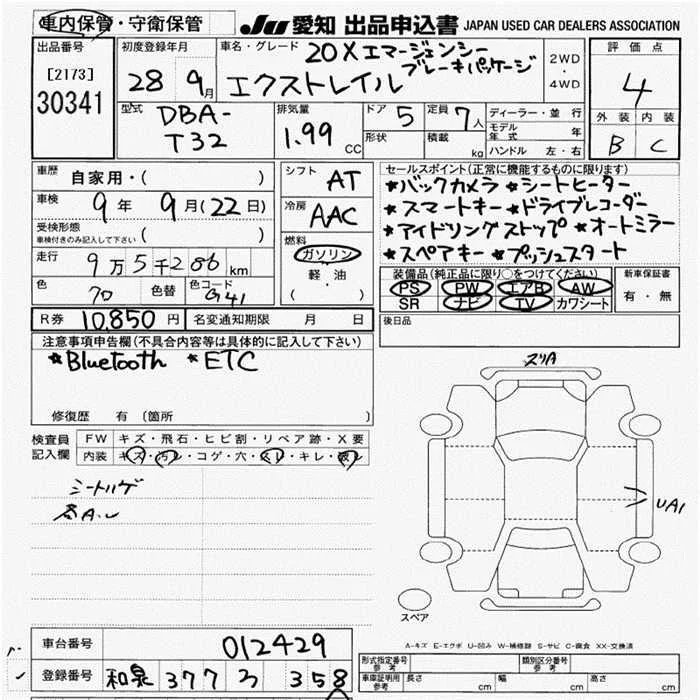 車内保管・守衛保管
JU 愛知 出品申込書 JAPAN USED CAR DEALERS ASSOCIATION
出品番号
[2173]
30341
初度登録年月
28 9月
車名・グレード 20X エマージェンシー
ブレーキパッケージ
エクストレイル
2WD
・
4WD
評価点
4
外装 内装
B C
型式 DBA-
T32
排気量
1.99 CC
ドア 5
形状
定員 7人
積載 kg
ディーラー・並行
モデル
年式 年
ハンドル 左・右
車歴 自家用・( )
車検 9年 9月(22日)
受検形態
車検付きのみ記入して下さい ( )
走行 9万5千286km
色 70 色替 色コード G41
シフト AT
冷房 AAC
燃料
ガソリン
軽・油
( )
セールスポイント(正常に機能するものに限ります)
★バックカメラ ★シートヒーター
★スマートキー ★ドライブレコーダー
★アイドリングストップ ★オートミラー
★スペアキー ★プッシュスタート
装備品(純正品に限り○をつけてください)
PS PW エアB AW
SR ナビ TV カワシート
新車保証書
有・無
R券 10,850円 名変通知期限 月 日
後日品
注意事項申告欄(不具合内容等は具体的に記入して下さい)
★Bluetooth ★ETC
修復歴 有(箇所 )
検査員
記入欄
FW キズ・飛石・ヒビ割・リペア跡・X要
内装 キズ・汚レ・コゲ・穴・スレ・キレ・破レ
シートハゲ
各A.U
スリA
UA1
スペア
A-キズ E-エクボ U-凹み W-補修跡 S-サビ C-腐食 XX-交換済
車台番号 012429
登録番号 和泉 377 ろ 358
形式指定番号
参考
類別区分番号
参考
車庫証明用
参考
長さ cm 幅 cm 高さ cm